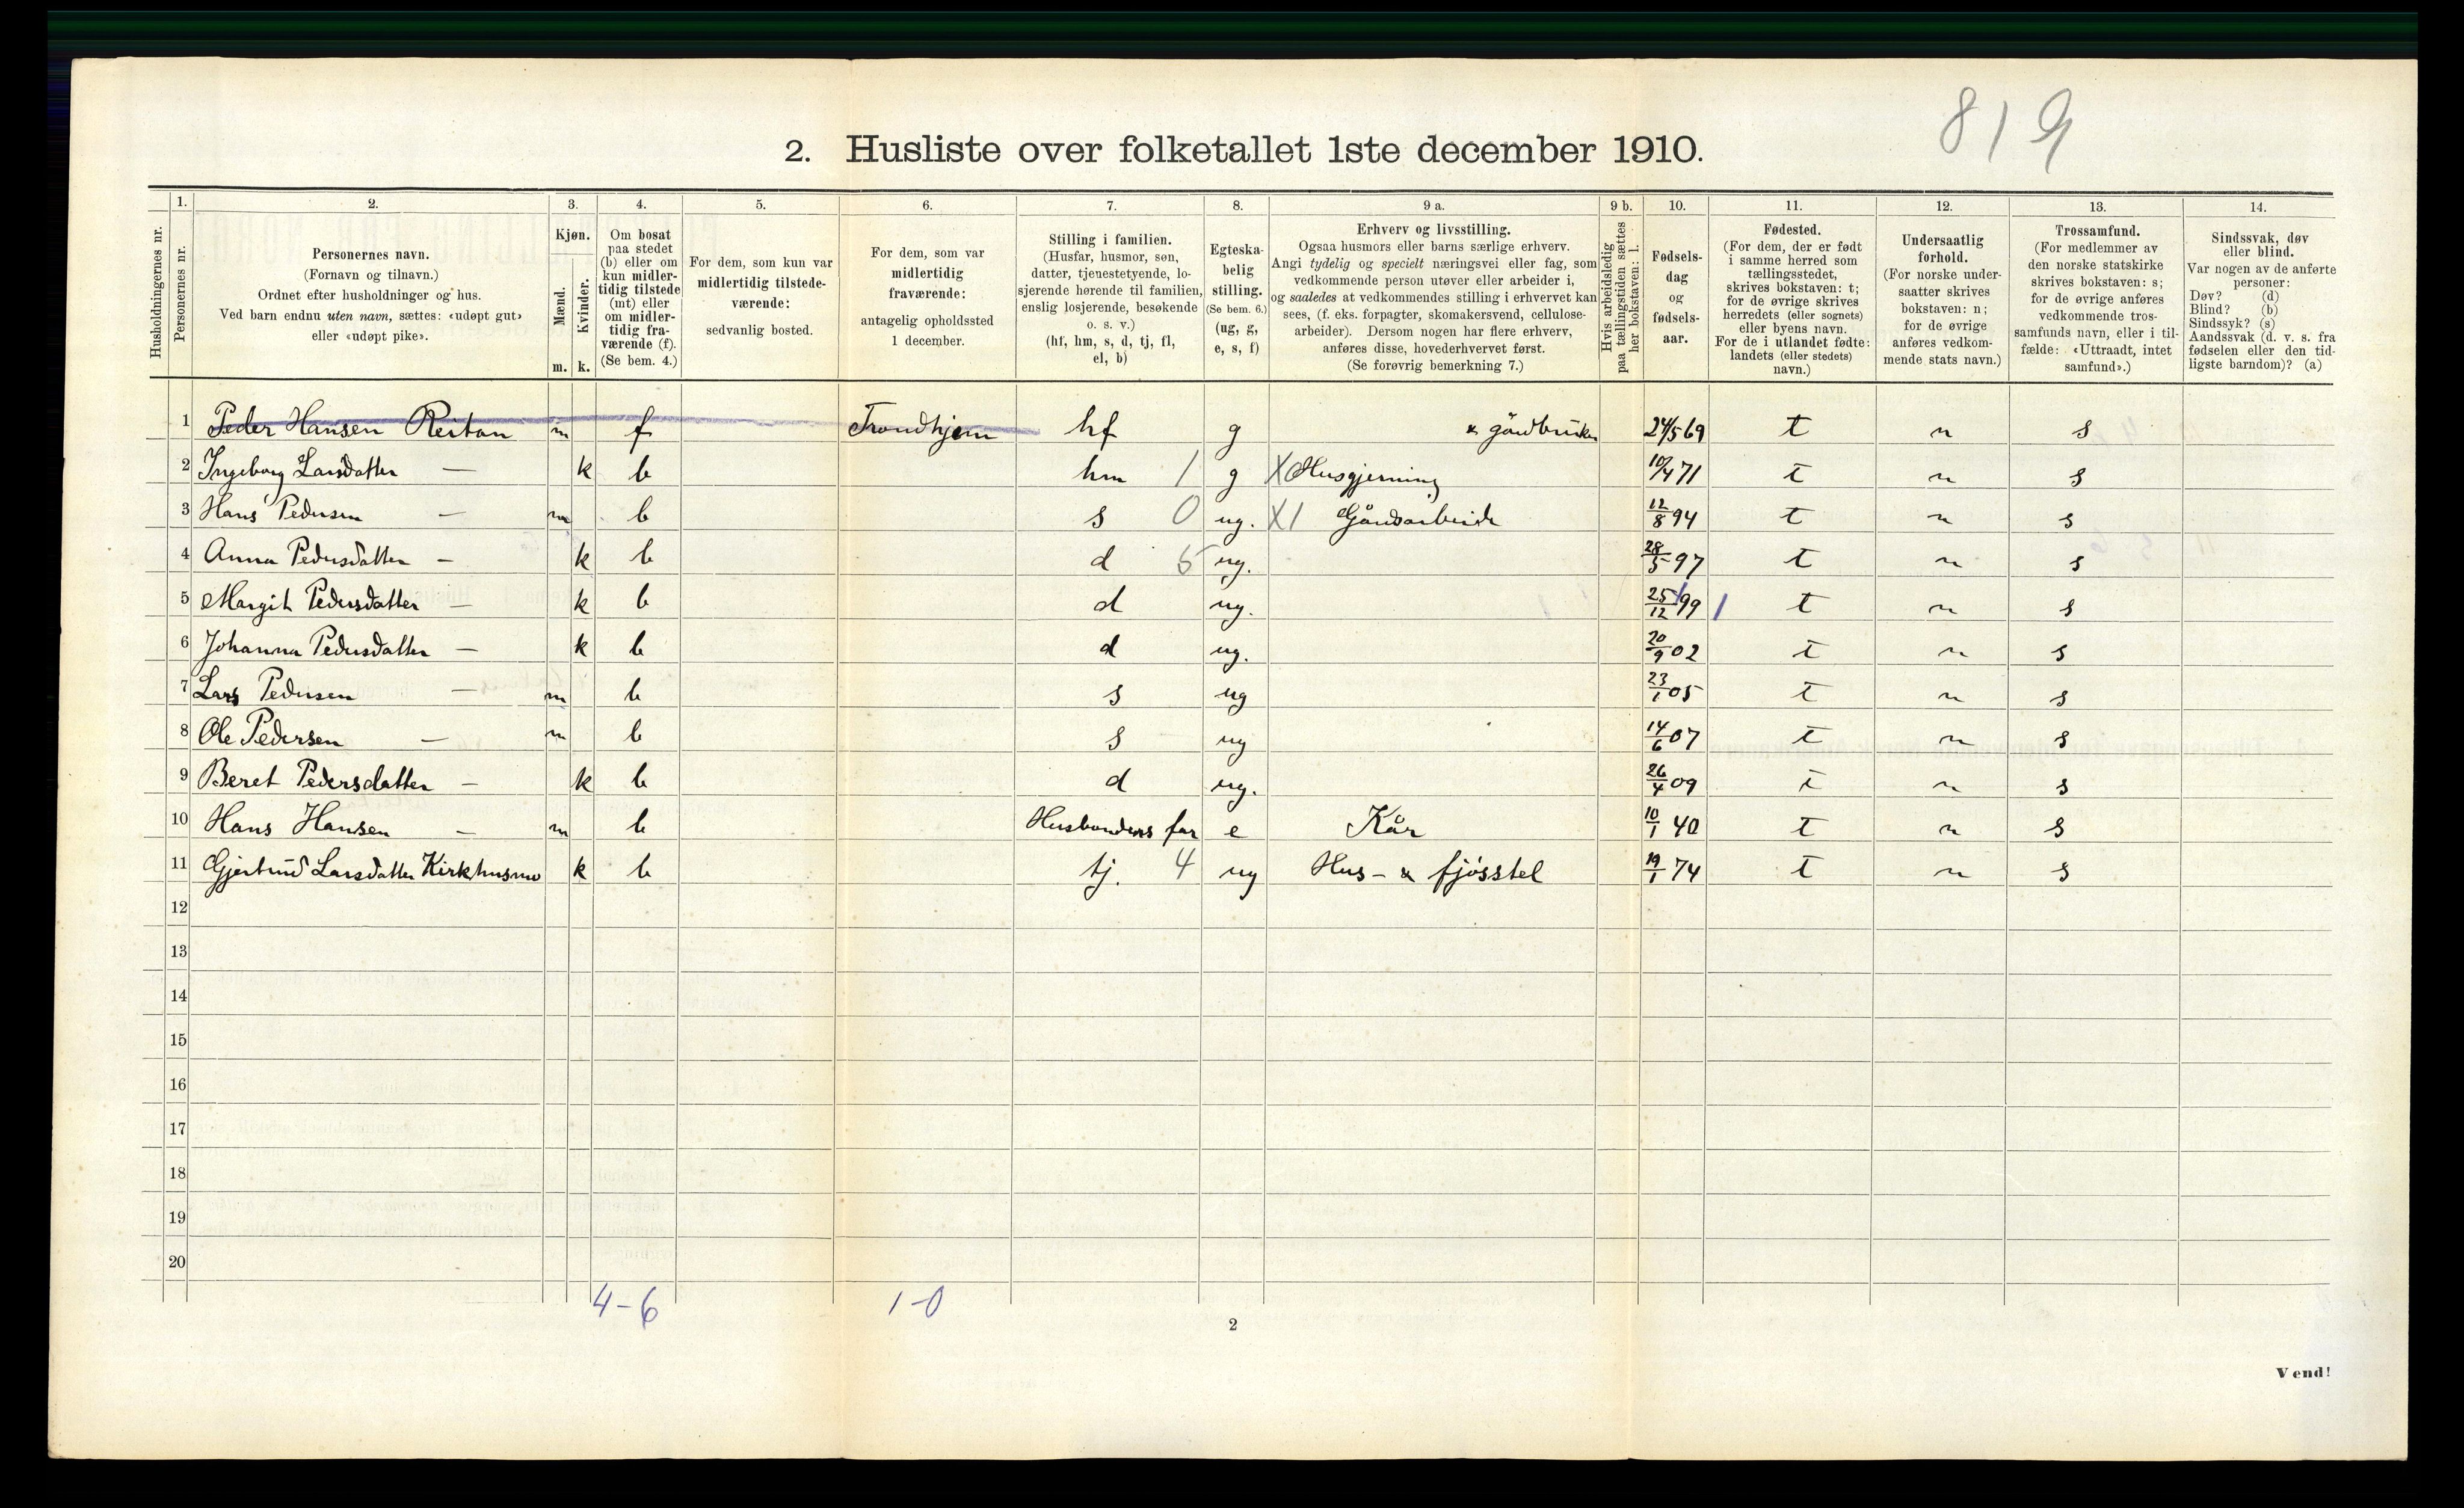 819
2. Husliste over folketallet 1ste december 1910.
1. 2. 3. 4. 5. 6. 7. 8. 9 a. 9 b. 10. 11. 12. 13. 14.
Husholdningernes nr.
Personernes nr.
Personernes navn.
(Fornavn og tilnavn.)
Ordnet efter husholdninger og hus.
Ved barn endnu uten navn, sættes: «udøpt gut»
eller «udøpt pike».
Kjøn.
Mænd. m.
Kvinder. k.
Om bosat
paa stedet
(b) eller om
kun midler-
tidig tilstede
(mt) eller
om midler-
tidig fra-
værende (f).
(Se bem. 4.)
For dem, som kun var
midlertidig tilstede-
værende:
sedvanlig bosted.
For dem, som var
midlertidig
fraværende:
antagelig opholdssted
1 december.
Stilling i familien.
(Husfar, husmor, søn,
datter, tjenestetyende, lo-
sjerende hørende til familien,
enslig losjerende, besøkende
o. s. v.)
(hf, hm, s, d, tj, fl,
el, b)
Egteska-
belig
stilling.
(Se bem. 6.)
(ug, g,
e, s, f)
Erhverv og livsstilling.
Ogsaa husmors eller barns særlige erhverv.
Angi tydelig og specielt næringsvei eller fag, som
vedkommende person utøver eller arbeider i,
og saaledes at vedkommendes stilling i erhvervet kan
sees, (f. eks. forpagter, skomakersvend, cellulose-
arbeider). Dersom nogen har flere erhverv,
anføres disse, hovederhvervet først.
(Se forøvrig bemerkning 7.)
Hvis arbeidsledig
paa tællingstiden sættes
her bokstaven: l.
Fødsels-
dag
og
fødsels-
aar.
Fødested.
(For dem, der er født
i samme herred som
tællingsstedet,
skrives bokstaven: t;
for de øvrige skrives
herredets (eller sognets)
eller byens navn.
For de i utlandet fødte:
landets (eller stedets)
navn.)
Undersaatlig
forhold.
(For norske under-
saatter skrives
bokstaven: n;
for de øvrige
anføres vedkom-
mende stats navn.)
Trossamfund.
(For medlemmer av
den norske statskirke
skrives bokstaven: s;
for de øvrige anføres
vedkommende tros-
samfunds navn, eller i til-
fælde: «Uttraadt, intet
samfund».)
Sindssvak, døv
eller blind.
Var nogen av de anførte
personer:
Døv? (d)
Blind? (b)
Sindssyk? (s)
Aandssvak (d. v. s. fra
fødselen eller den tid-
ligste barndom)? (a)
1 Peder Hansen Reitan m f Trondhjem hf g x gårdbruker 24/5 69 t n s
2 Ingeborg Larsdatter — k b hm 1 g X Husgjerning 10/4 71 t n s
3 Hans Pedersen — m b s 0 ug. X1 Gårdsarbeide 12/8 94 t n s
4 Anna Pedersdatter — k b d 5 ug. 28/5 97 t n s
5 Margit Pedersdatter — k b d ug. 25/12 99 1 t n s
6 Johanna Pedersdatter — k b d ug. 20/9 02 t n s
7 Lars Pedersen — m b s ug 23/1 05 t n s
8 Ole Pedersen — m b s ug 14/6 07 t n s
9 Beret Pedersdatter — k b d ug. 26/4 09 t n s
10 Hans Hansen — m b Husbondens far e Kår 10/1 40 t n s
11 Gjertrud Larsdatter Kirkhusmo k b tj. 4 ug Hus- & fjøsstel 19/1 74 t n s
12
13
14
15
16
17
18
19
20
4-6 1-0
2
Vend!